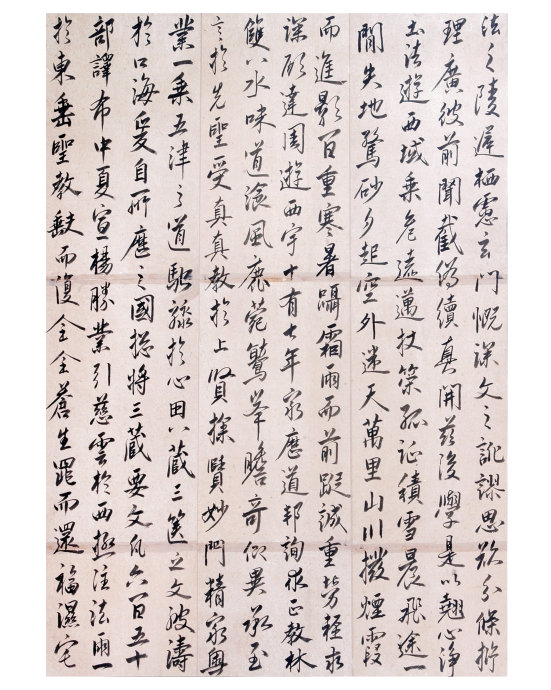 法之陵遲栖慮玄門慨深文之訛謬思欲分條析
理廣彼前聞截偽續真開茲後學是以翹心淨
土法遊西域乘危遠邁杖策孤征積雪晨飛途一
間失地驚砂夕起空外迷天萬里山川撥煙霞
而進影百重寒暑躡霜雨而前蹤誠重勞輕求
深願達周遊西宇十有七年窮歷道邦詢求正教林
雙八水味道飡風鹿菀鷲峯瞻奇仰異承至
言於先聖受真真教於上賢探賾妙門精窮奧
業一乘五津之道馳驟於心田八藏三篋之文波濤
於口海爰自所歷之國總將三藏要文凡六百五十
部譯布中夏宣楊勝業引慈雲於西極注法雨一
於東垂聖教缺而復全全蒼生罪而還福濕宅